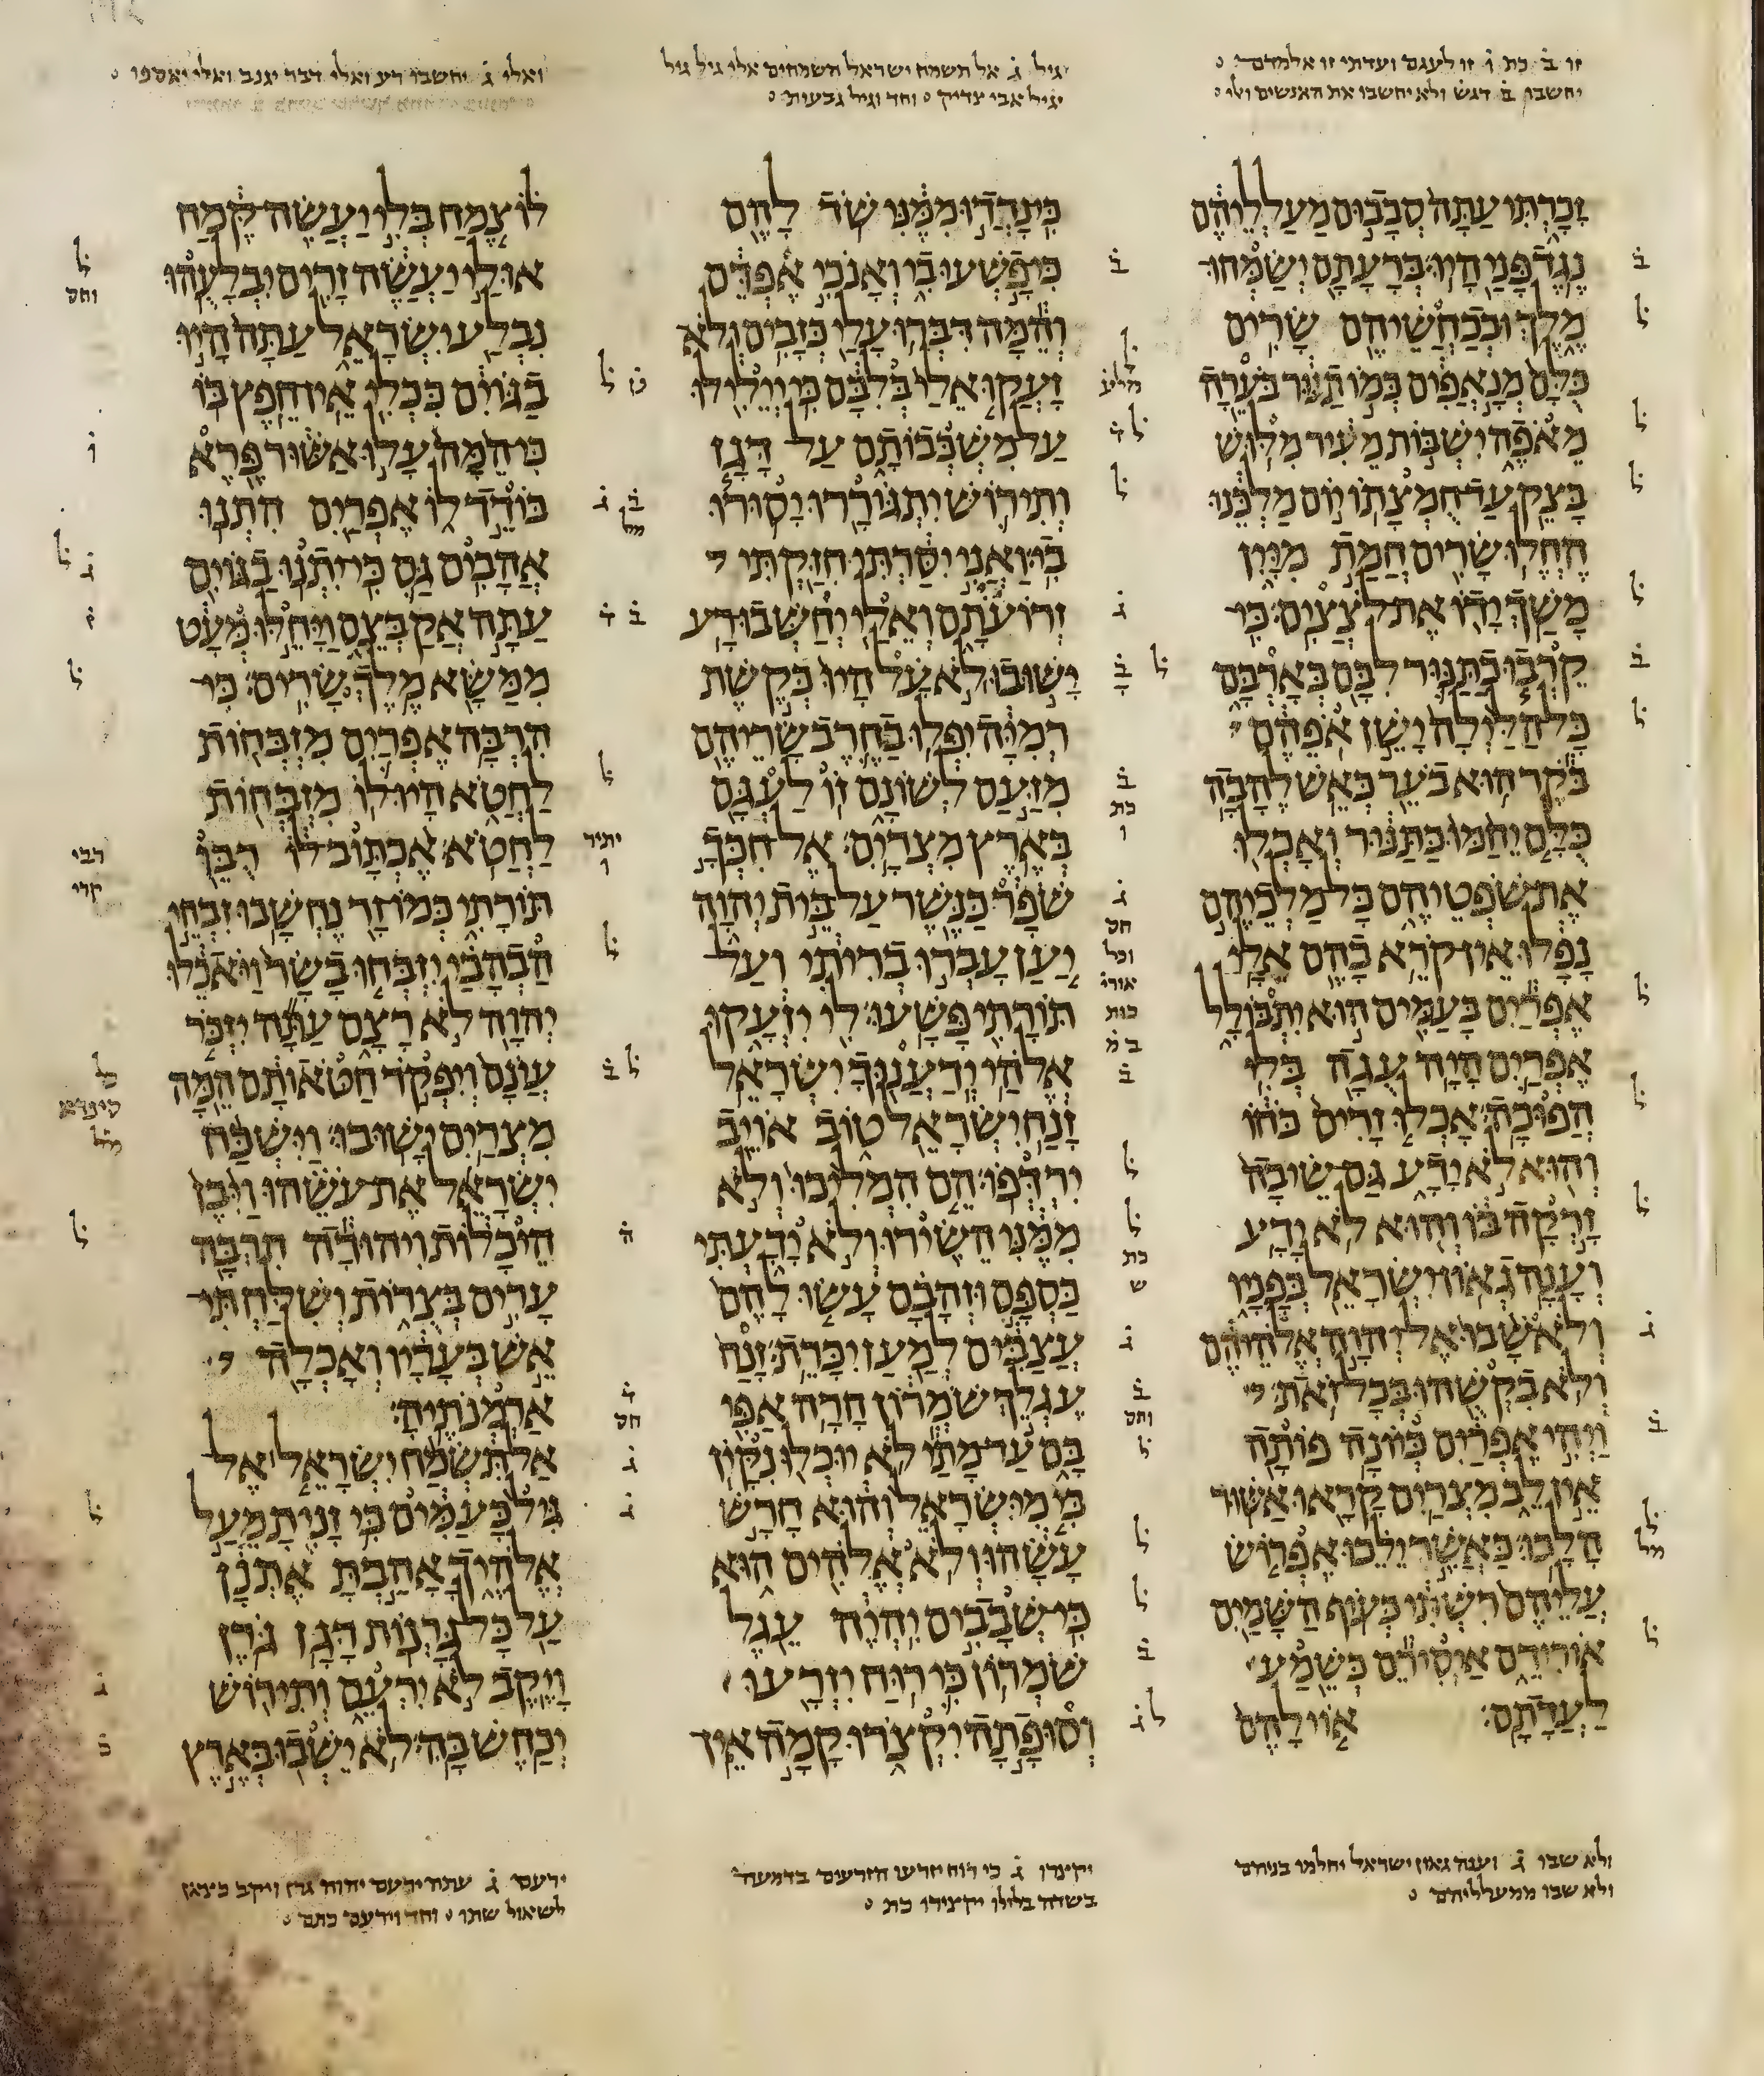 זו ב כת ו זו לעגם ועדתי זו אלמדם
יחשבו ב דגש ולא יחשבו את האנשים
יגיל ג אל תשמח ישראל השמחים אלי גיל גיל
יגיל אבי צדיק וחד וגיל גבעות
ואלי ג יחשבו רע ואלי דבר יגנב ואלי יאספו
זכרתי עתה סבבום מעלליהם
נגד פני היו ברעתם ישמחו
מלך ובכחשיהם שרים
כלם מנאפים כמו תנור בערה
מאפה ישבות מעיר מלוש
בצק עד חמצתו יום מלכנו
החלו שרים חמת מיין
משך ידו את לצצים כי
קרבו כתנור לבם בארבם
כל הלילה ישן אפהם
בקר הוא בער כאש להבה
כלם יחמו כתנור ואכלו
את שפטיהם כל מלכיהם
נפלו אין קרא בהם אלי
אפרים בעמים הוא יתבולל
אפרים היה עגה בלי
הפוכה אכלו זרים כחו
והוא לא ידע גם שיבה
זרקה בו והוא לא ידע
וענה גאון ישראל בפניו
ולא שבו אל יהוה אלהיהם
ולא בקשהו בכל זאת
ויהי אפרים כיונה פותה
אין לב מצרים קראו אשור
הלכו כאשר ילכו אפרוש
עליהם רשתי כעוף השמים
אורידם איסירם כשמע
לעדתם אוי להם
כי נדדו ממני שד להם
כי פשעו בי ואנכי אפדם
והמה דברו עלי כזבים ולא
זעקו אלי בלבם כי ייללו
על משכבותם על דגן
ותירוש יתגוררו יסורו
בי ואני יסרתי חזקתי
זרועתם ואלי יחשבו רע
ישובו לא על היו כקשת
רמיה יפלו בחרב שריהם
מזעם לשונם זו לעגם
בארץ מצרים אל חכך
שפר כנשר על בית יהוה
יען עברו בריתי ועל
תורתי פשעו לי יזעקו
אלהי ידענוך ישראל
זנח ישראל טוב אויב
ירדפו הם המליכו ולא
ממני השירו ולא ידעתי
כספם וזהבם עשו להם
עצבים למען יכרת זנח
עגלך שמרון חרה אפי
בם עד מתי לא יוכלו נקין
כי מישראל והוא חרש
עשהו ולא אלהים הוא
כי שבבים יהיה עגל
שמרון כי רוח יזרעו
וסופתה יקצרו קמה אין
לו צמח בלי יעשה קמח
אולי יעשה זרים יבלעהו
נבלע ישראל עתה היו
בגוים ככלי אין חפץ בו
כי המה עלו אשור פרא
בודד לו אפרים התנו
אהבים גם כי יתנו בגוים
עתה אקבצם ויחלו מעט
ממשא מלך שרים כי
הרבה אפרים מזבחות
לחטא היו לו מזבחות
לחטא אכתוב לו רבו
תורתי כמו זר נחשבו זבחי
הבהבי יזבחו בשר ויאכלו
יהוה לא רצם עתה יזכר
עונם ויפקד חטאותם המה
מצרים ישובו וישכח
ישראל את עשהו ויבן
היכלות ויהודה הרבה
ערים בצרות ושלחתי
אש בעריו ואכלה
ארמנתיה
אל תשמח ישראל אל
גיל כעמים כי זנית מעל
אלהיך אהבת אתנן
על כל גרנות דגן גרן
ויקב לא ירעם ותירוש
יכחש בה לא ישבו בארץ
ולא שבו ג וענה גאון ישראל יחלמו בניהם
ולא שבו ממעלליהם
יקצרו ג כי רוח יזרעו הזרעים בדמעה
בשדה בלילו יקצירו כת
ירעם ג עתה ירעם יהוה גרן ויקב כצאן
לשאול שתו וחד וירעם כתם